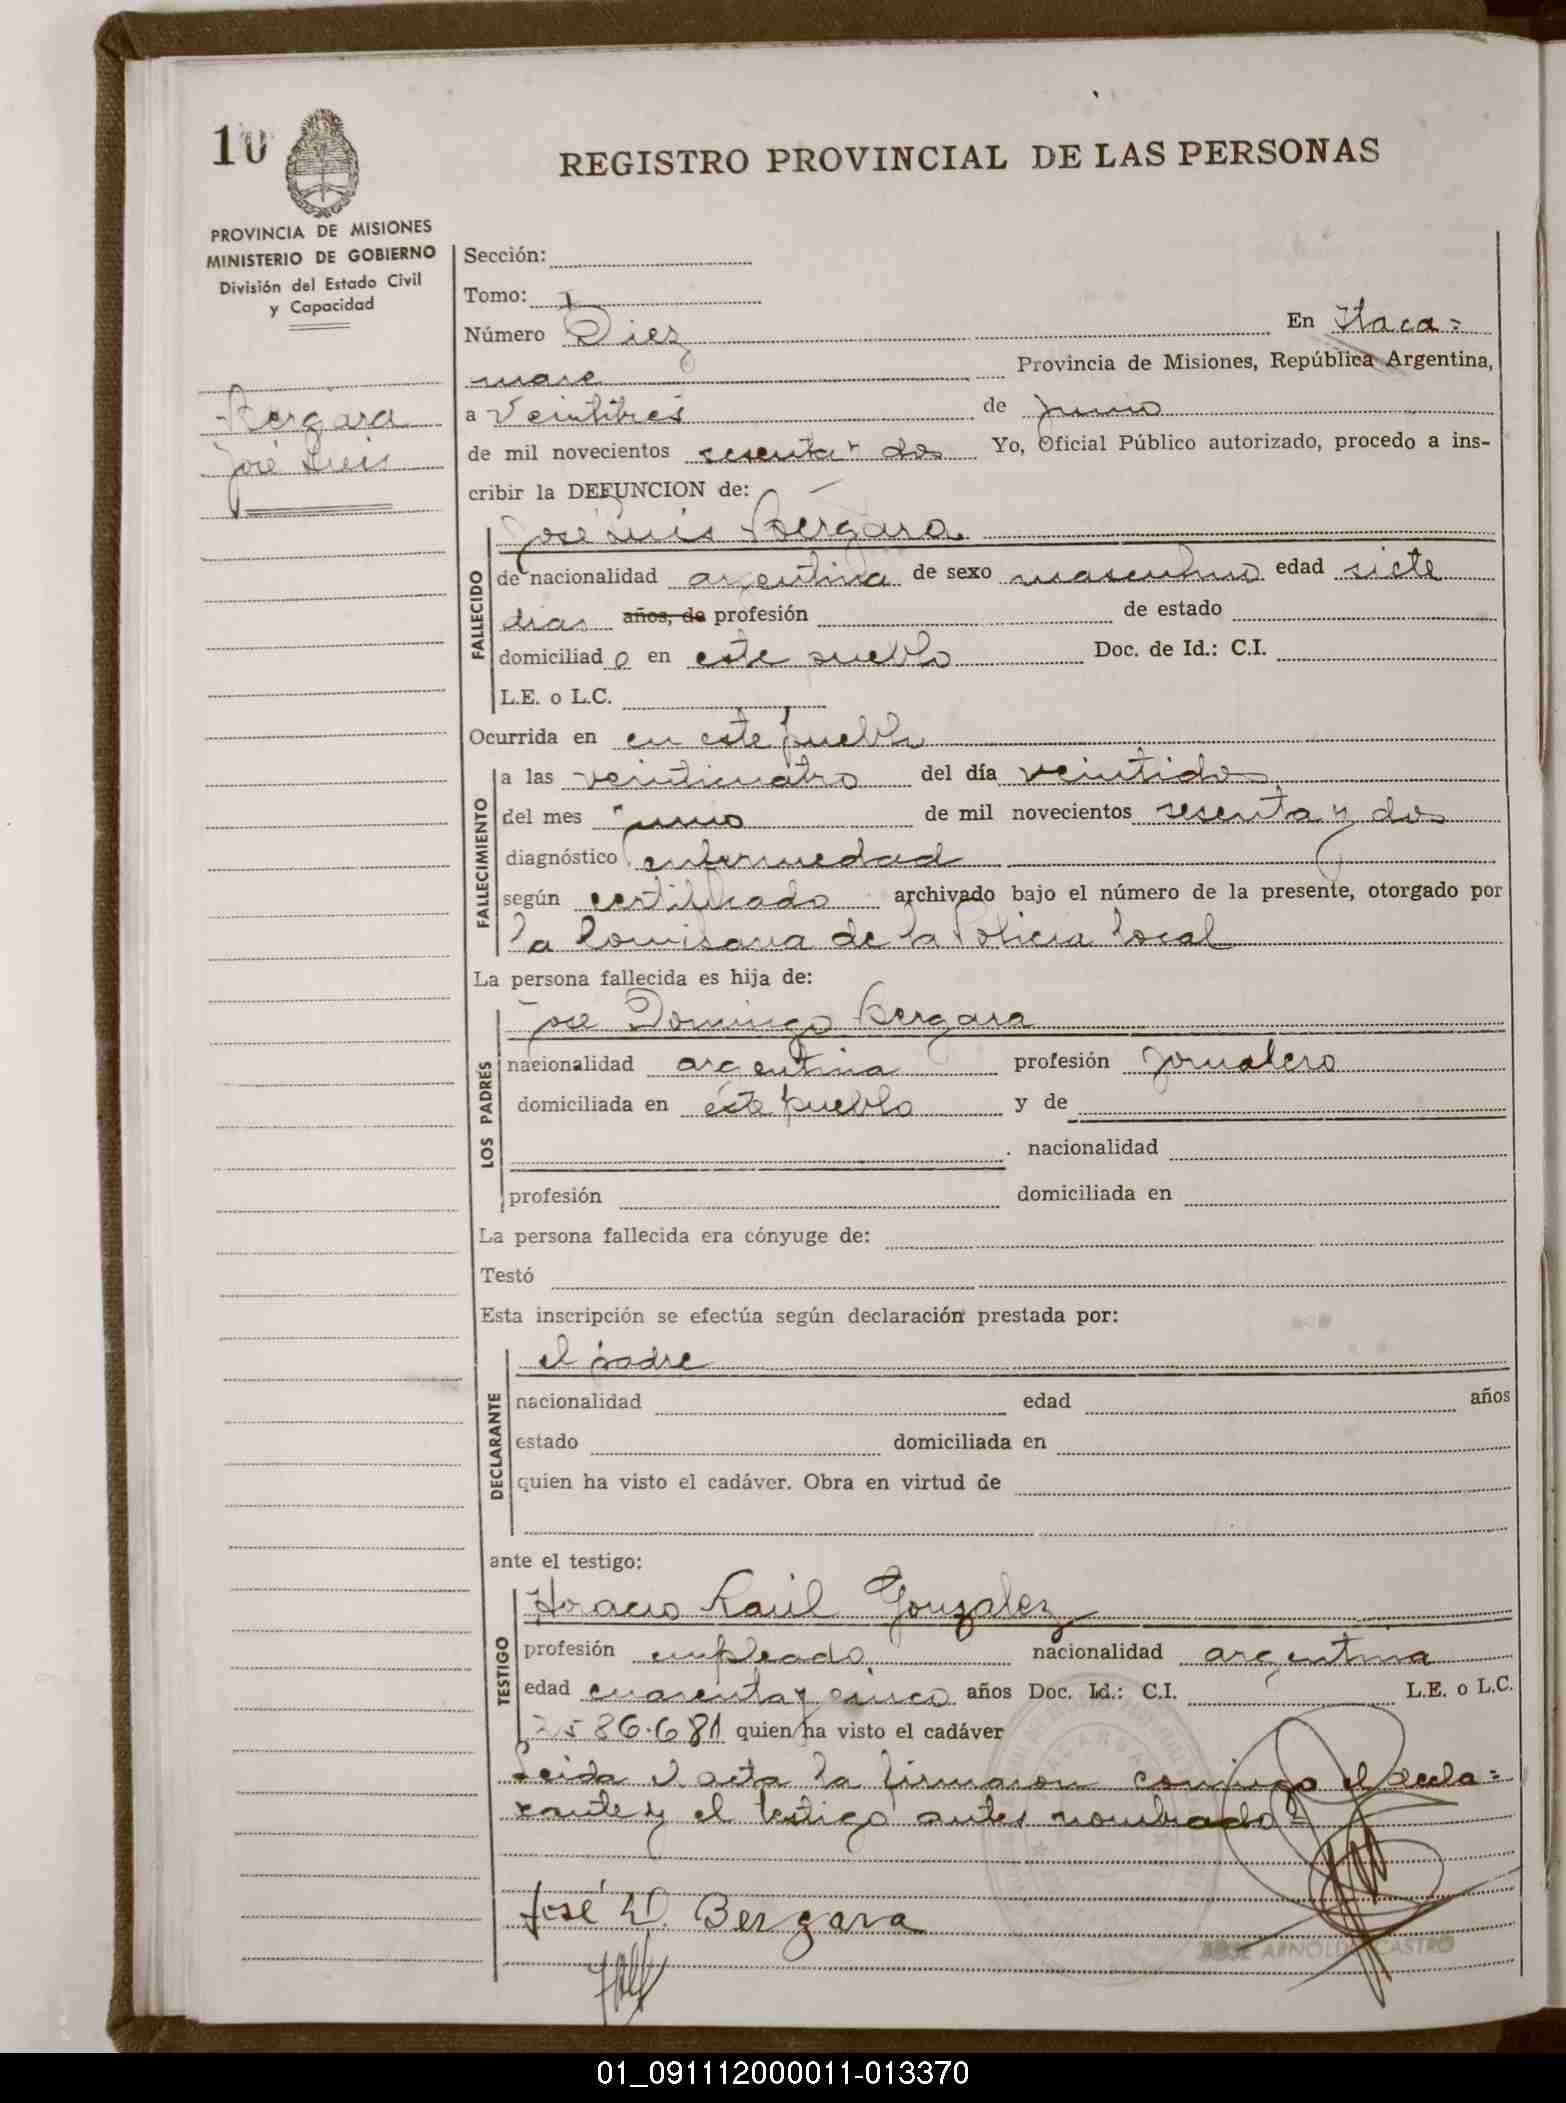 10
REGISTRO PROVINCIAL DE LAS PERSONAS
PROVINCIA DE MISIONES
MINISTERIO DE GOBIERNO
División del Estado Civil
y Capacidad
Bergara
José Luis
Sección:
Tomo: I
Número Diez En Itaca=
mare Provincia de Misiones, República Argentina,
a Veintitres de junio
de mil novecientos sesenta y dos Yo, Oficial Público autorizado, procedo a ins-
cribir la DEFUNCION de:
José Luis Bergara
FALLECIDO
de nacionalidad argentina de sexo masculino edad siete
dias años, de profesión de estado
domiciliad o en este pueblo Doc. de Id.: C.I.
L.E. o L.C.
Ocurrida en en este pueblo
FALLECIMIENTO
a las veinticuatro del día veintidos
del mes junio de mil novecientos sesenta y dos
diagnóstico enfermedad
según certificado archivado bajo el número de la presente, otorgado por
la Comisaria de la Policia local
La persona fallecida es hija de:
LOS PADRES
José Domingo Bergara
nacionalidad argentina profesión jornalero
domiciliada en este pueblo y de
nacionalidad
profesión domiciliada en
La persona fallecida era cónyuge de:
Testó
Esta inscripción se efectúa según declaración prestada por:
DECLARANTE
el padre
nacionalidad edad años
estado domiciliada en
quien ha visto el cadáver. Obra en virtud de
ante el testigo:
TESTIGO
Horacio Raúl Gonzalez
profesión empleado nacionalidad argentina
edad cuarenta y cinco años Doc. Id.: C.I. L.E. o L.C.
2586.681 quien ha visto el cadáver
Leida el acta la firmaron conmigo el decla=
rante y el testigo antes nombrado
José D. Bergara
JOSE ARNOLDO CASTRO
01_091112000011-013370